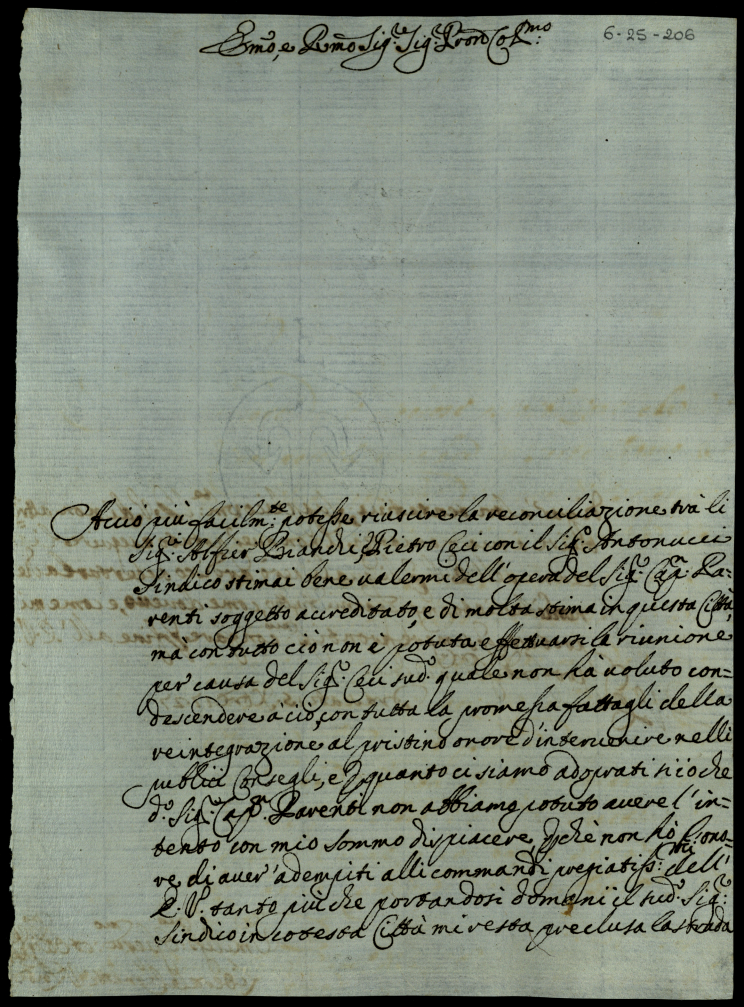 Emo, e Rmo Sig.re Sig.re Pron Col.mo
6-25-206
Acciò più facilm.te potesse riuscire la reconciliazione trà li
Sig.ri Alfier Bianchi, e Pietro Ceci con il Sig.r Antonucci
Sindico stimai bene valermi dell'opera del Sig.r Cap.n Pa-
renti soggetto accreditato, e di molta stima in questa Città,
mà con tutto ciò non è potuta effettuarsi la riunione
per causa del Sig.r Ceci sud.o quale non hà voluto con=
descendere a ciò, con tutta la promessa fattagli della
reintegrazione al pristino onore d'intervenire nelli
publici Consegli, e quanto ci siamo adoprati si io che
d.o Sig.r Cap.n Parenti non abbiamo potuto avere l'in-
tento con mio sommo dispiacere, perchè non hò l'ono-
re di aver' adempiti alli commandi pregiatiss.mi dell'
E. V. tanto più che portandosi domani il sud.o Sig.r
Sindico in cotesta Città mi resta preclusa la strada